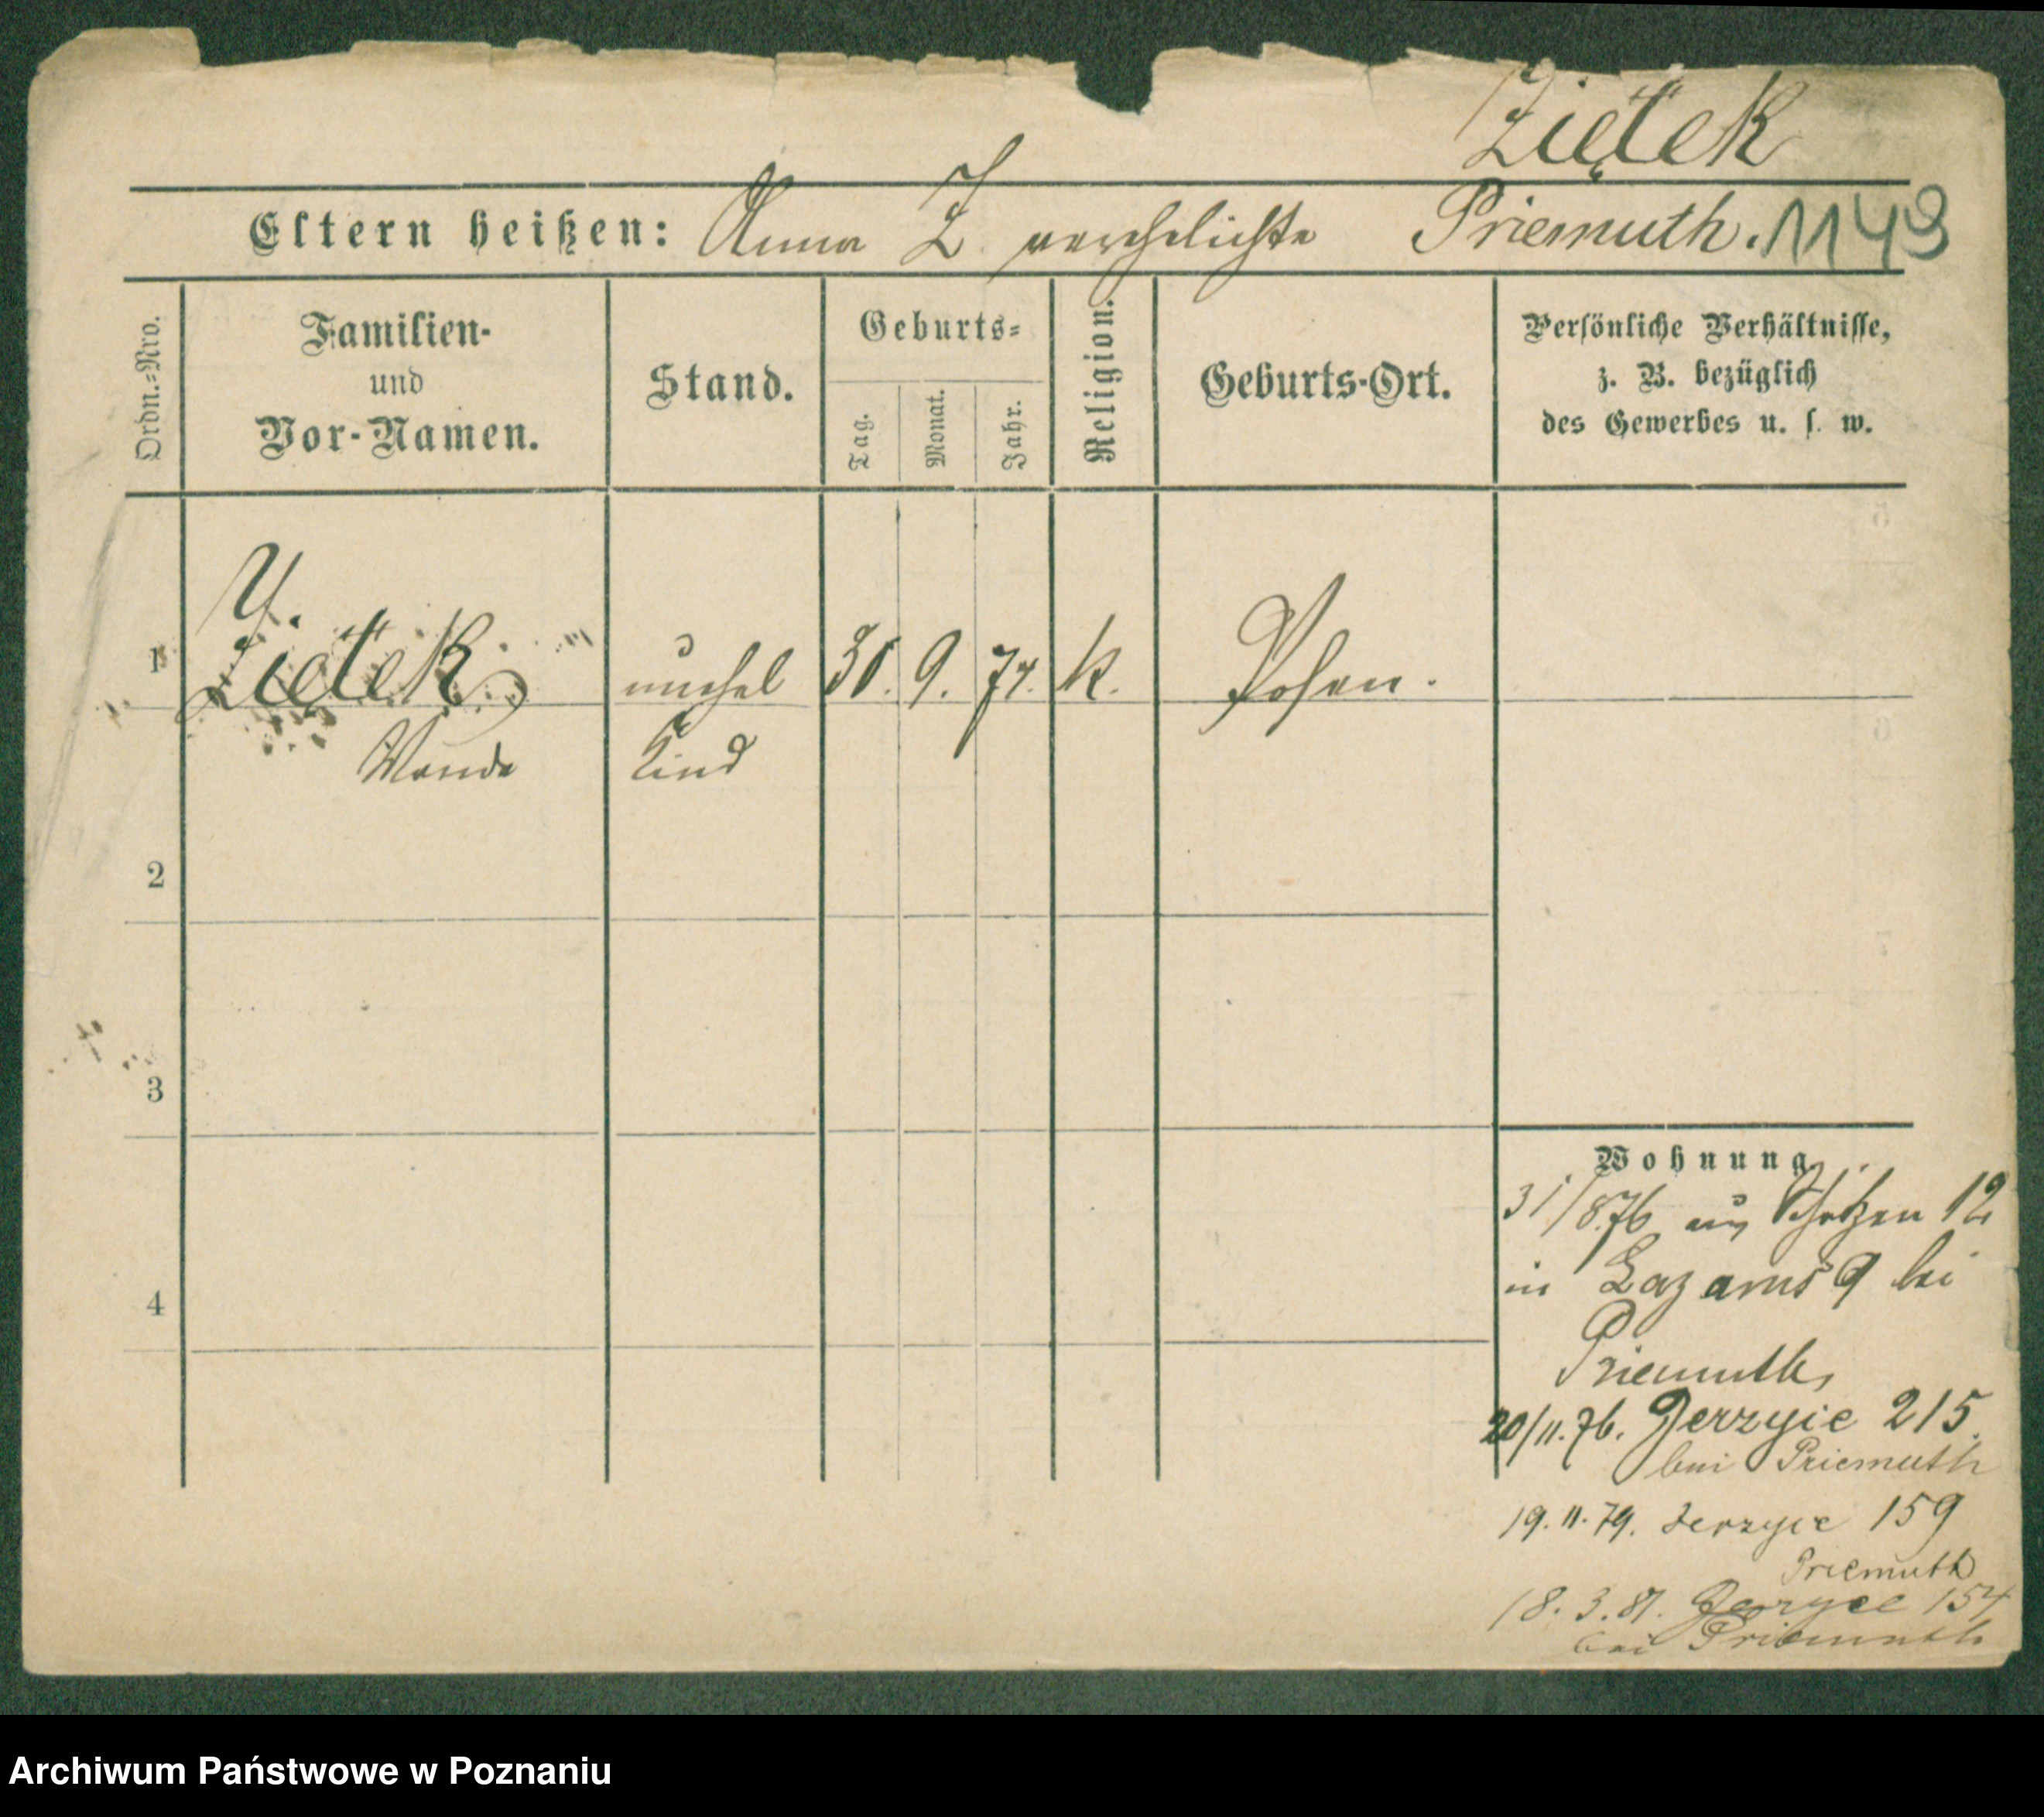 Ziętek
Eltern heißen: Anna Z verehelichte Priemuth. 1149
Ordn.-Nro.
Familien-
und
Vor-Namen.
Stand.
Geburts-
Tag.
Monat.
Jahr.
Religion.
Geburts-Ort.
Persönliche Verhältnisse,
z. B. bezüglich
des Gewerbes u. s. w.
1
Ziętek unehel 30. 9. 74. k. Posen.
Wanda Kind
2
3
4
Wohnung.
31/8.76 aus Schützen 12
in Lazarus 9 bei
Priemuth,
20/11.76. Jerzyce 215.
bei Priemuth
19.11.79. Jerzyce 159
Priemuth
18.3.81. Jerzyce 154
bei Priemuth
Archiwum Państwowe w Poznaniu